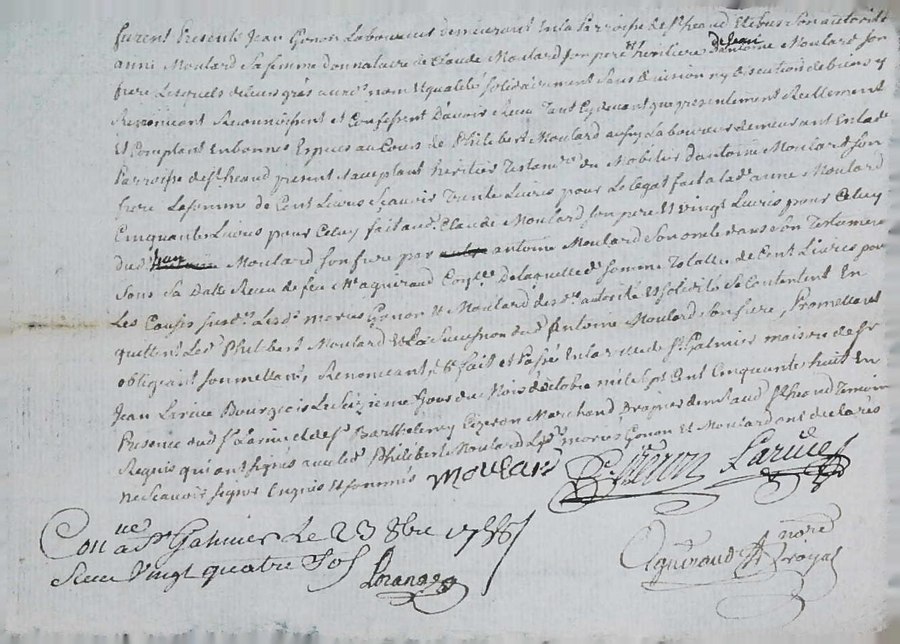 furent Presents Jean Gonon Laboureur demeurant En la Parroisse de St heaud Et de son autorité
anne Moulard Sa femme donnataire de Claude Moulard Son pere Et heritiere de Jean d'antoine Moulard Son
frere Lesquels de leur gré aux nom Et qualité solidairement Sans division ny discution de biens y
Renonçant Reconnoissent et Confessent d'avoir Receu Tant Cydevant que presentement Reellement
Et Comptant En bonnes Especes au Cours de Philibert Moulard aussy Laboureur demeurant En lad
Parroisse de St heaud present Et acceptant heritier Testamre du Mobilier d'antoine Moulard Son
frere La somme de Cent Livres Scavoir Trente Livres pour Le legat fait a lad anne Moulard
Cinquante Livres pour Celuy fait aud Claude Moulard Son pere Et vingt Livres pour Celuy
dud Jean Moulard Son frere par antoine Moulard Son oncle dans Son Testament
Sous Sa Datte Receu de feu Me aguiraud De laquelle d somme Totalle de Cent Livres pour
Les Causes susd Lesd mariés Gonon Et Moulard desd autorité Et solidité Se Contentent En
quittent Led Philibert Moulard Et La Succession dud Antoine Moulard Son frere, Promettant
obligeant soumettant, Renonçant, &c fait et Passé En la ville de St Galmier maison de Sr
Jean Larue Bourgeois Le Seizieme Jour du Mois d'octobre mil Sept Cent Cinquante huit En
Presence dud Sr Larue et de Sr Barthelemy Cizeron Marchand Drapier demt aud St heaud Temoins
Requis qui ont signés avec led Philibert Moulard Lesd mariés Gonon et Moulard ont declarés
ne Scavoir signer Enquis Et sommés Moulard Cizeron Larue
Con ne a St Galmier Le 23 8bre 1758
Receu Vingt quatre Sols
Aguiraud Nore Royal